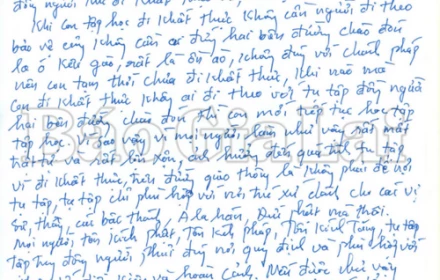 đông người
Khi con tập học đi khất thực không cần người đi theo
bảo vệ cũng không cần ai đứng hai bên đường chào đón
la ó kêu gào, rất là ồn ào, không đúng với chánh pháp
nên con tạm thời chưa đi khất thực, khi nào mà
con đi khất thực không ai đi theo với tụ tập đông người
hai bên đường chào đón thì con mới tiếp tục học tập
tập học. vì sao vậy vì mọi người làm như vậy rất mất
trật tự và rất lộn xộn, ảnh hưởng đến quá trình tu tập
vì đi khất thực, trên đường giao thông là không phải để hội
tụ tập, tụ tập chỉ phù hợp với nơi, thế xứ dành cho các vị
sư, thầy, các bậc thánh, A la hán, Đức phật mà thôi.
Mọi người, tôn kính phật, Tôn kính pháp, Tôn kính Tăng, tụ tập
tập hợp đông người phải đúng nơi quy định và phù hợp với
và hoàn cảnh. Mới được như vậy
Báo Gia Lai